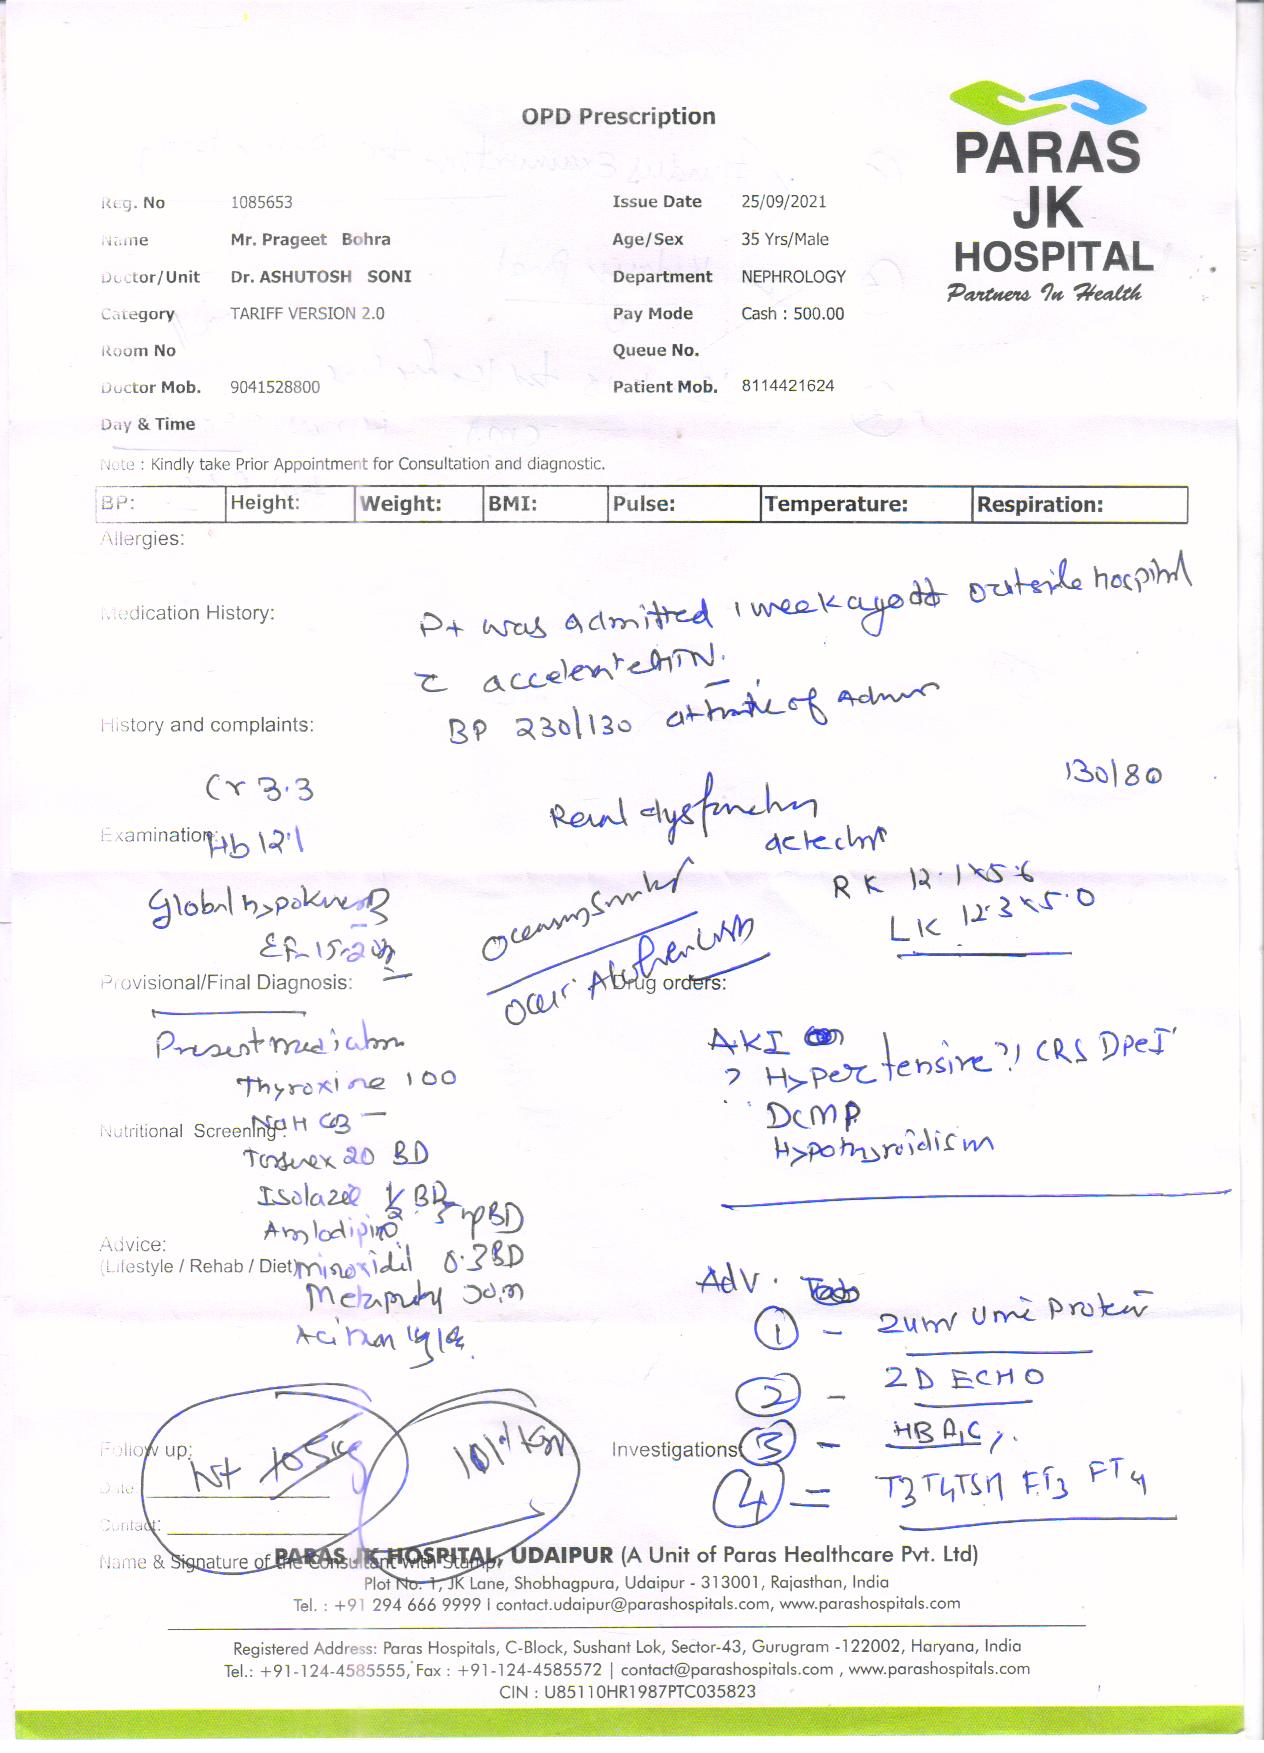 OPD Prescription
PARAS
JK
HOSPITAL
Partners In Health
Reg. No 1085653 Issue Date 25/09/2021
Name Mr. Prageet Bohra Age/Sex 35 Yrs/Male
Doctor/Unit Dr. ASHUTOSH SONI Department NEPHROLOGY
Category TARIFF VERSION 2.0 Pay Mode Cash : 500.00
Room No Queue No.
Doctor Mob. 9041528800 Patient Mob. 8114421624
Day & Time
Note : Kindly take Prior Appointment for Consultation and diagnostic.
BP: Height: Weight: BMI: Pulse: Temperature: Respiration:
Allergies:
Medication History:
Pt was admitted 1 week ago outside hospital
c̄ accelerated HTN.
History and complaints:
BP 230/130 at time of
Cr 3.3
130/80
Renal dysfunction
Examination:
Hb 12.1
detected
RK 12.1x5.6
Global hypokinesia
LK 12.3x5.0
EF-15-20%
Provisional/Final Diagnosis: Drug orders:
Present medication
AKI
Thyroxine 100
? Hypertensive ?/ CRS
NaHCO3 -
DCMP
Nutritional Screening :
Hypothyroidism
20 BD
Isolazine 1/2 BD
Amlodipine 5 BD
Advice:
(Lifestyle / Rehab / Diet)
Minoxidil BD
Adv.
1 - 24hr Urine Protein
2 - 2D ECHO
Follow up: Investigations:
3 - HBA1C
Wt 105kg
101 Kg
Date:
4 = T3T4TSH FT3 FT4
Contact:
Name & Signature of the Consultant with Stamp:
PARAS JK HOSPITAL, UDAIPUR (A Unit of Paras Healthcare Pvt. Ltd)
Plot No. 1, JK Lane, Shobhagpura, Udaipur - 313001, Rajasthan, India
Tel. : +91 294 666 9999 I contact.udaipur@parashospitals.com, www.parashospitals.com
Registered Address: Paras Hospitals, C-Block, Sushant Lok, Sector-43, Gurugram -122002, Haryana, India
Tel.: +91-124-4585555, Fax : +91-124-4585572 | contact@parashospitals.com , www.parashospitals.com
CIN : U85110HR1987PTC035823